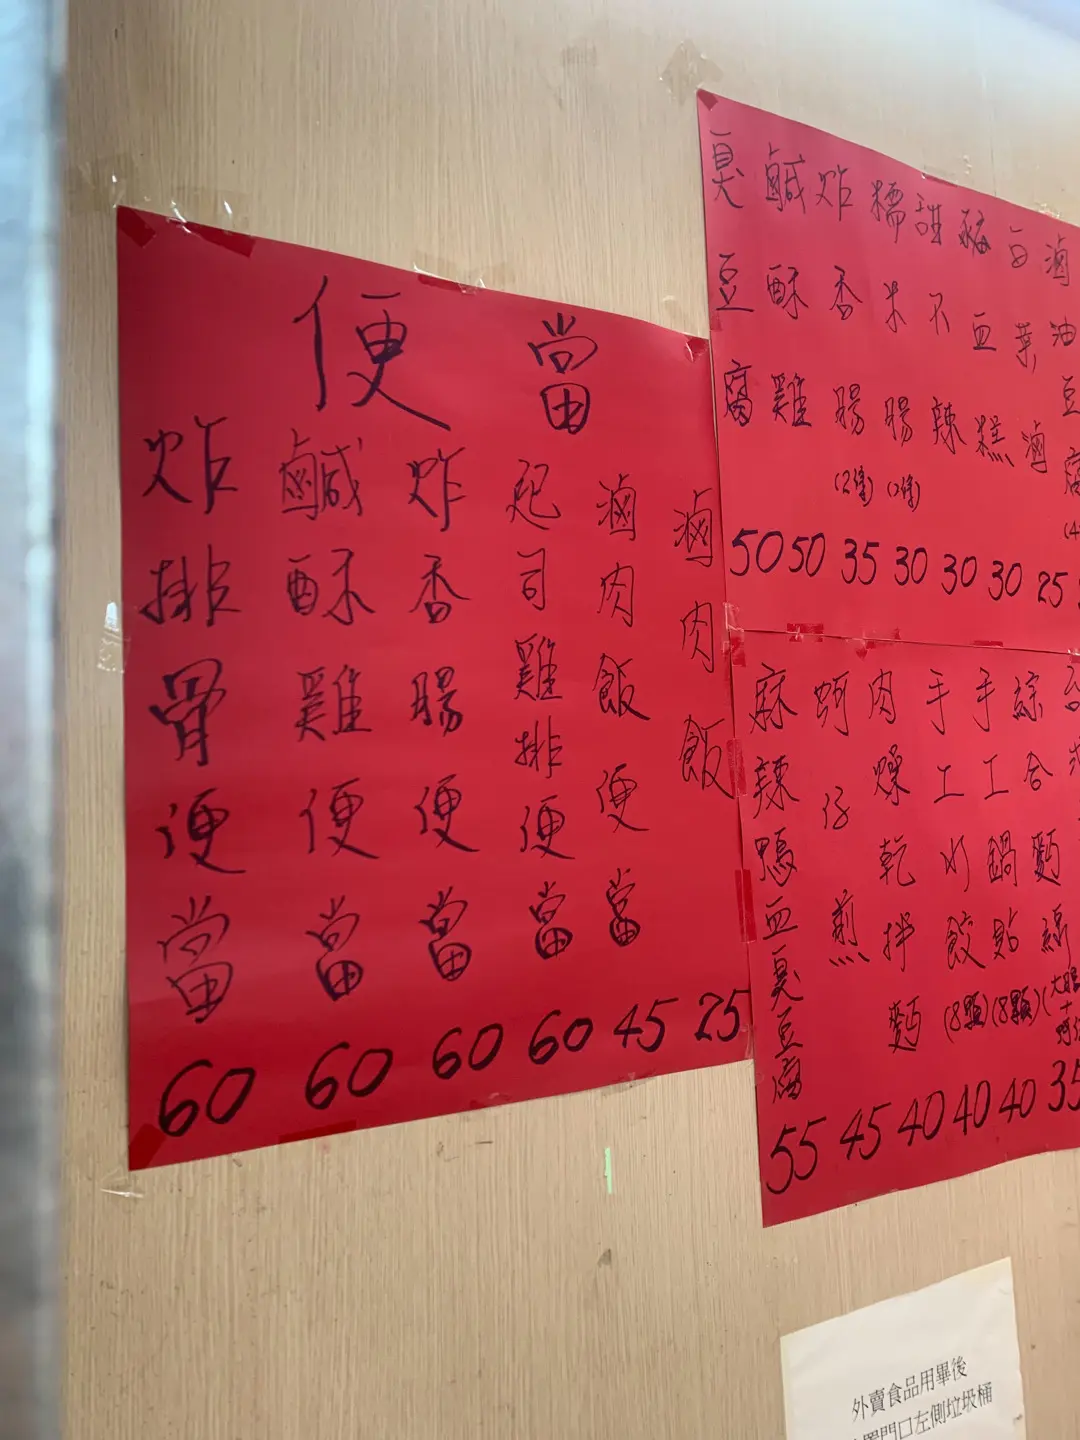 便當
炸排骨便當 60
鹹酥雞便當 60
炸香腸便當 60
起司雞排便當 60
滷肉飯便當 45
滷肉飯 25
臭豆腐 50
鹹酥雞 50
炸香腸(2條) 35
糯米腸(2條) 30
甜不辣 30
豬血糕 30
百葉滷 25
滷油豆腐
麻辣鴨血臭豆腐 55
蚵仔煎 45
肉燥乾拌麵 40
手工水餃(8顆) 40
手工鍋貼(8顆) 40
綜合麵線(大腸+ 35
外賣食品用畢後
門口左側垃圾桶